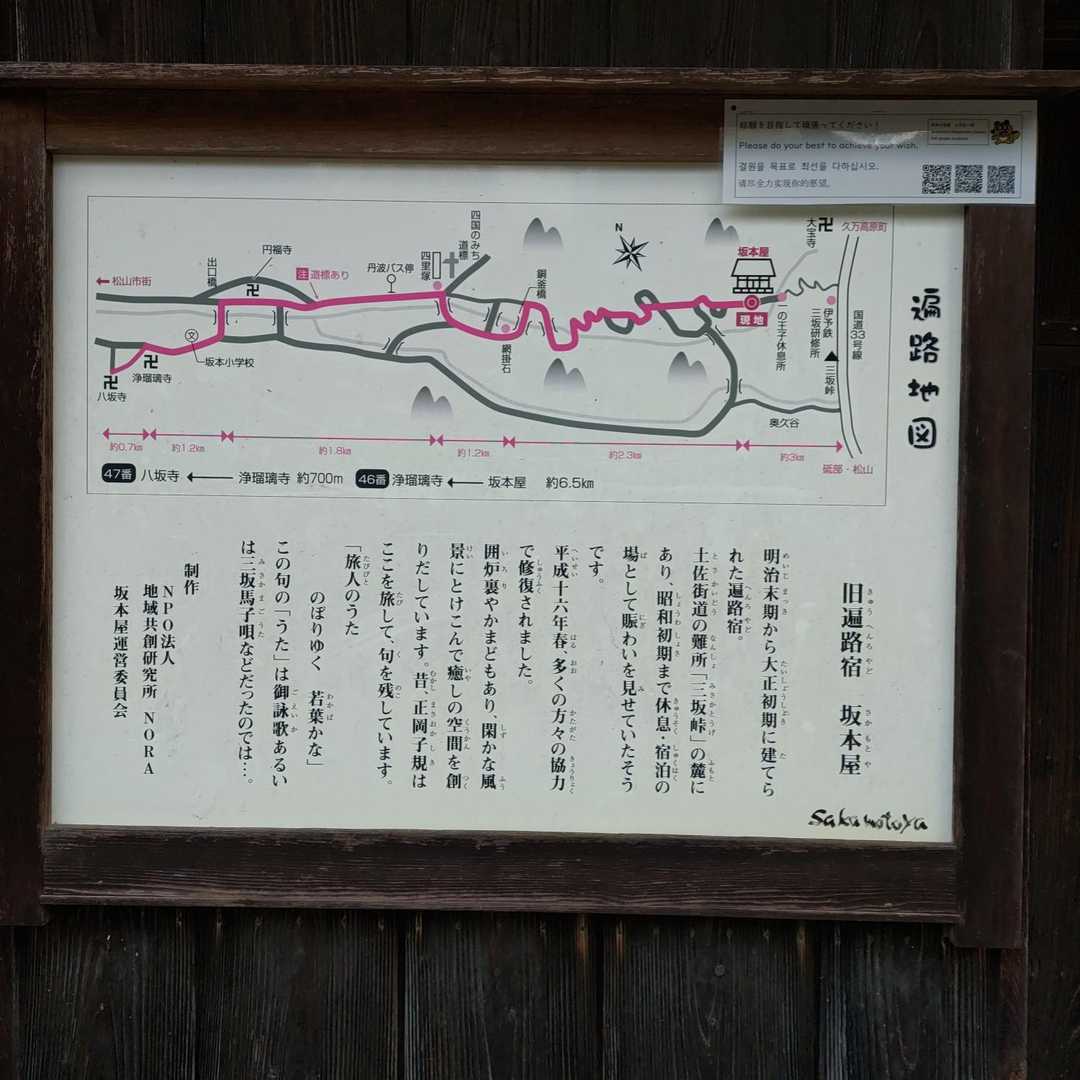 結願を目指して頑張ってください!
Please do your best to achieve your wish.
결원을 목표로 최선을 다하십시오.
请尽全力实现你的愿望。
遍路地図
久万高原町
大宝寺
四国のみち
道標
四里塚
円福寺
出口橋
松山市街
注 道標あり
丹波バス停
N
坂本屋
現地
鍋釜橋
網掛石
一の王子休息所
伊予鉄
三坂研修所
三坂峠
国道33号線
文
坂本小学校
浄瑠璃寺
八坂寺
奥久谷
砥部・松山
約0.7㎞
約1.2㎞
約1.8㎞
約1.2㎞
約2.3㎞
約3㎞
47番 八坂寺 ← 浄瑠璃寺 約700m 46番 浄瑠璃寺 ← 坂本屋 約6.5㎞
旧遍路宿 坂本屋
明治末期から大正初期に建てら
れた遍路宿。
土佐街道の難所「三坂峠」の麓に
あり、昭和初期まで休息・宿泊の
場として賑わいを見せていたそう
です。
平成十六年春、多くの方々の協力
で修復されました。
囲炉裏やかまどもあり、閑かな風
景にとけこんで癒しの空間を創
りだしています。昔、正岡子規は
ここを旅して、句を残しています。
「旅人のうた
のぼりゆく 若葉かな」
この句の「うた」は御詠歌あるい
は三坂馬子唄などだったのでは…。
制作
NPO法人
地域共創研究所 NORA
坂本屋運営委員会
Sakamotoya